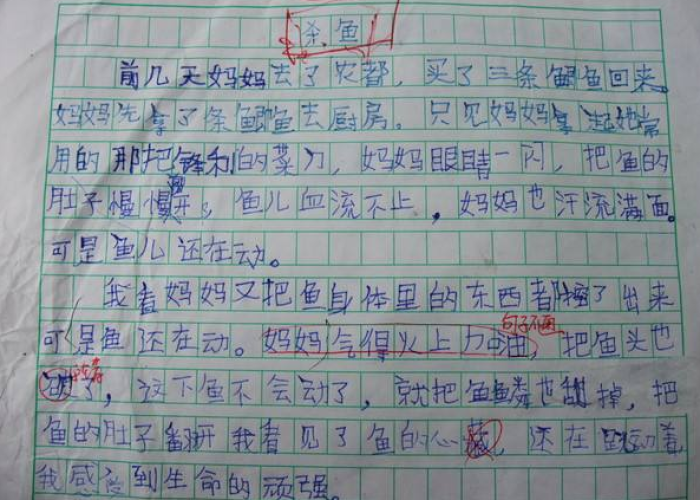 杀鱼
前几天妈妈去了农都，买了三条鲫鱼回来。
妈妈先拿了条鲫鱼去厨房。只见妈妈拿起她常
用的那把锋利的菜刀，妈妈眼睛一闪，把鱼的
肚子慢慢剥开，鱼儿血流不止，妈妈也汗流满面。
可是鱼儿还在动。
我看妈妈又把鱼身体里的东西都掏了出来
可是鱼还在动。妈妈气得火上加油，把鱼头也
句子不通
了，这下鱼不会动了，就把鱼鳞也刮掉，把
鱼的肚子翻开我看见了鱼的心，还在跳动着
我感受到生命的顽强。